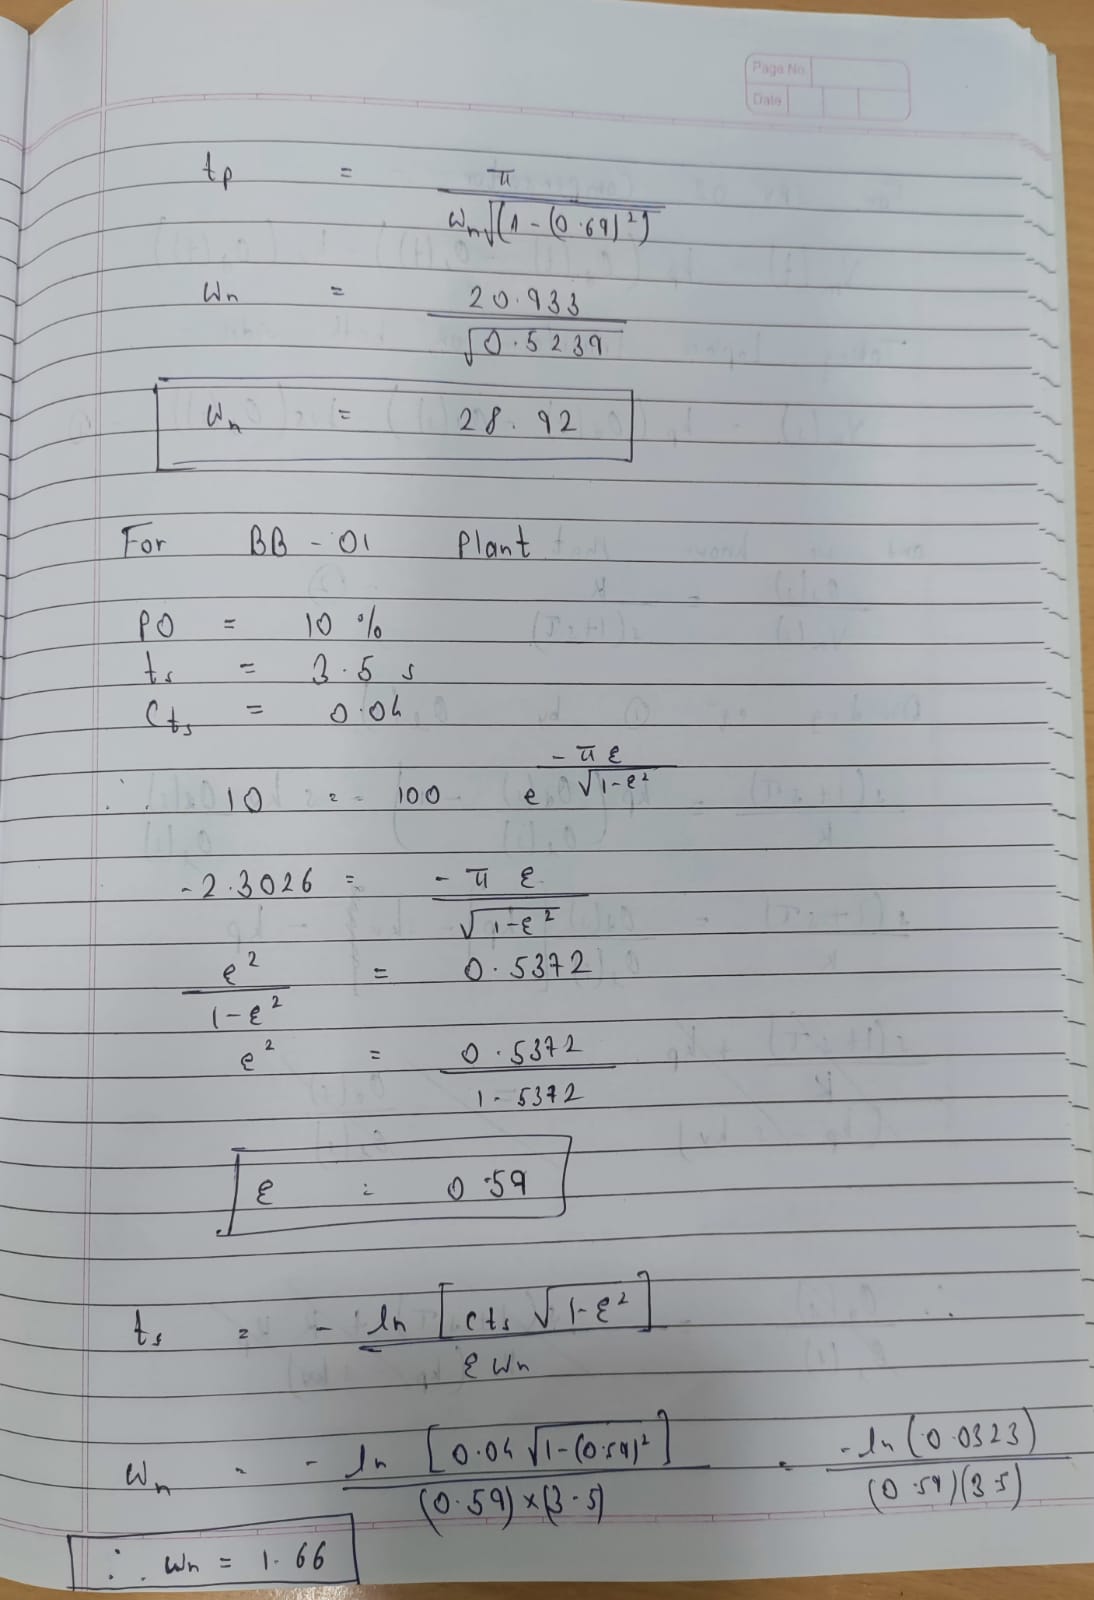 Page No.
Date
tp = π / ωn√(1-(0.69)²)
ωn = 20.933 / √0.5239
ωn = 28.92
For BB-01 Plant
PO = 10 %
ts = 3.5 s
Cts = 0.04
∴ 10 = 100 e^(-πξ / √1-ξ²)
-2.3026 = -πξ / √1-ξ²
ξ² / 1-ξ² = 0.5372
ξ² = 0.5372 / 1.5372
ξ = 0.59
ts = - ln [cts √1-ξ²] / ξωn
ωn = - ln [0.04 √1-(0.59)²] / (0.59)×(3.5) = -ln(0.0323) / (0.59)(3.5)
∴ ωn = 1.66